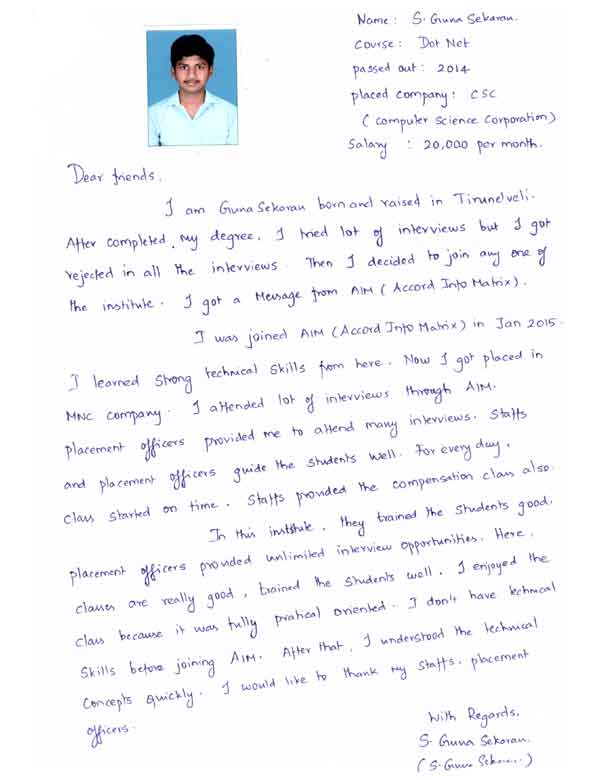 Name : S. Guna Sekaran.
Course : Dot Net
passed out : 2014
placed company : CSC
( Computer Science Corporation)
Salary : 20,000 per month.
Dear friends,
I am Guna Sekaran born and raised in Tirunelveli.
After completed my degree, I tried lot of interviews but I got
rejected in all the interviews. Then I decided to join any one of
the institute. I got a Message from AIM ( Accord Info Matrix).
I was joined AIM (Accord Info Matrix) in Jan 2015.
I learned strong technical skills from here. Now I got placed in
MNC company. I attended lot of interviews through AIM.
placement officers provided me to attend many interviews. Staffs
and placement officers guide the students well. For every day,
class started on time. Staffs provided the compensation class also.
In this institute, they trained the students good.
placement officers provided unlimited interview opportunities. Here,
classes are really good, trained the students well. I enjoyed the
class because it was fully pratical oriented. I don't have technical
skills before joining AIM. After that, I understood the technical
concepts quickly. I would like to thank my staffs, placement
officers.
With Regards,
S. Guna Sekaran.
(S. Guna Sekaran.)